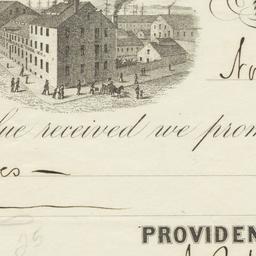 No
lue received we prom
es —
PROVIDEN